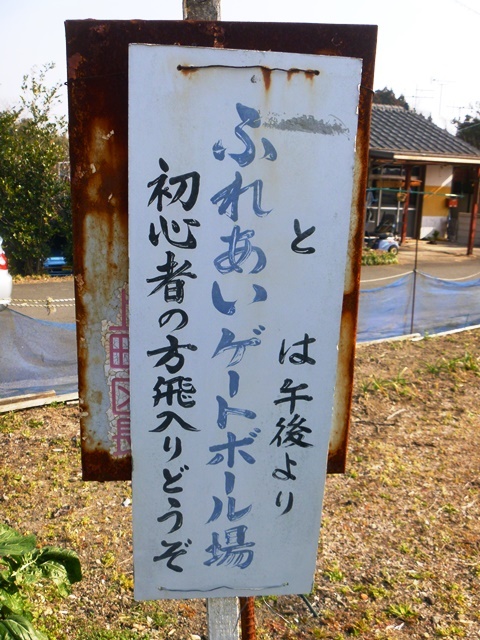 と　は午後より
ふれあいゲートボール場
初心者の方飛入りどうぞ